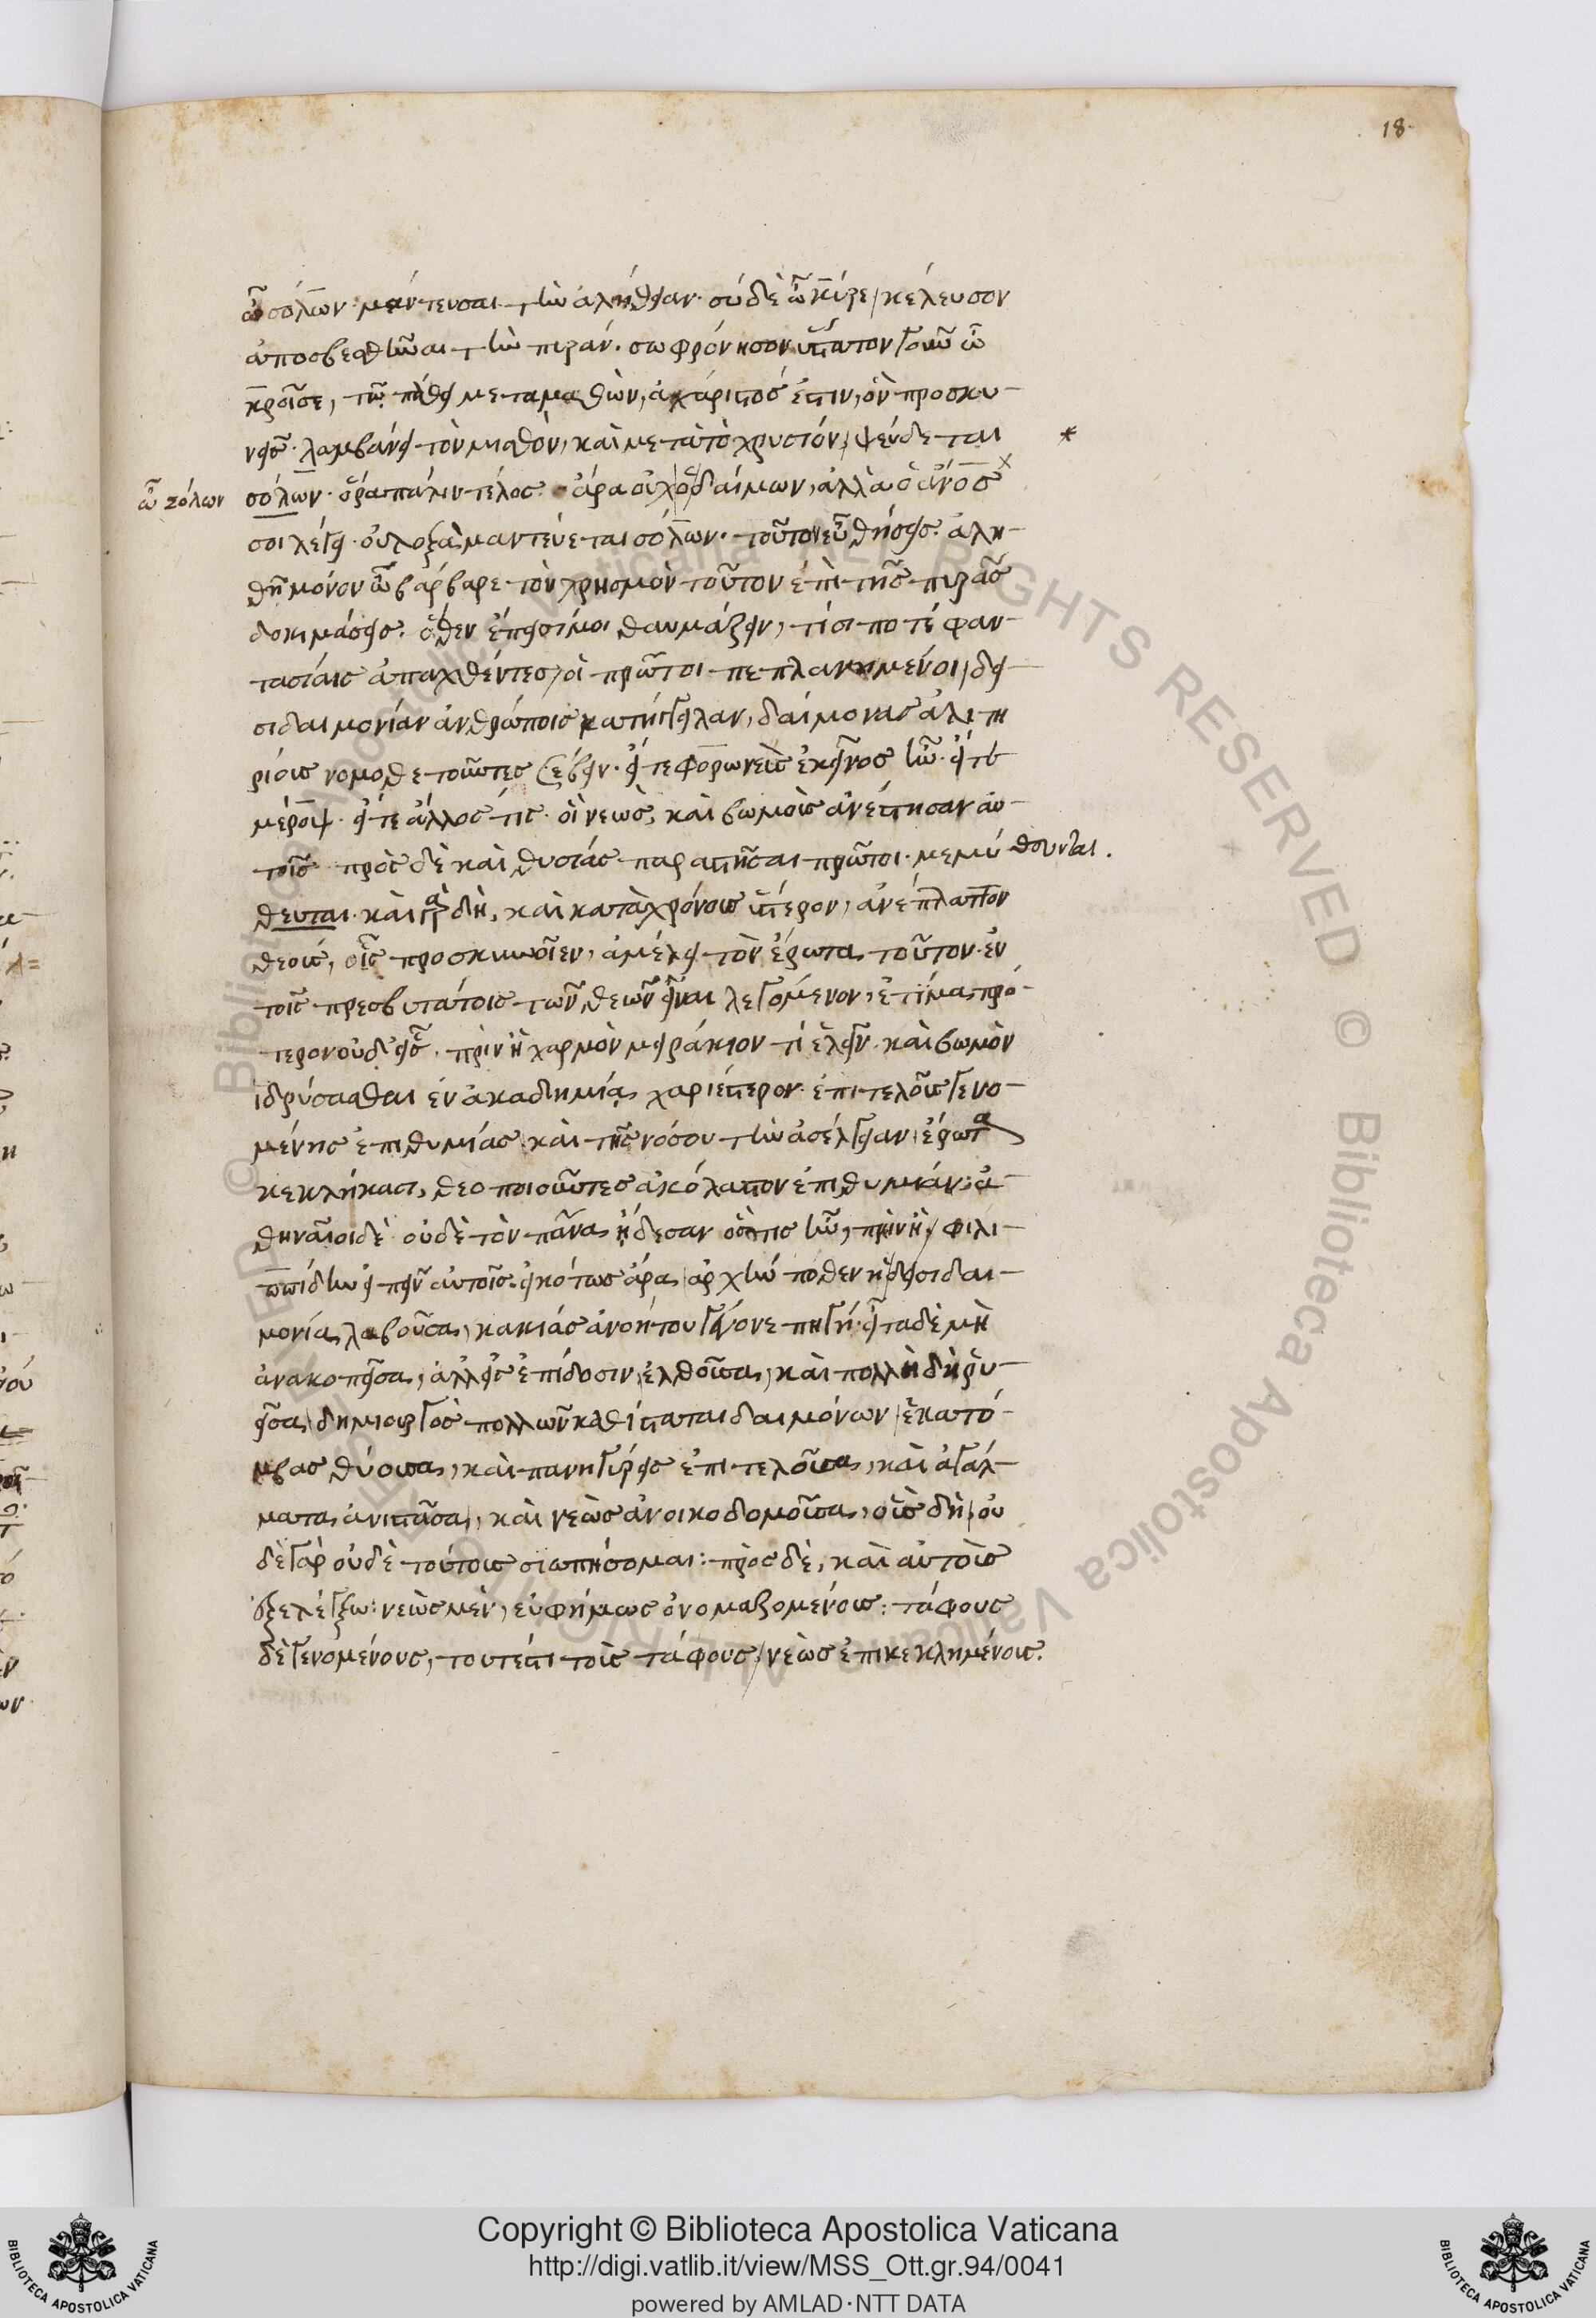 18
ὦ σόλων μάντευσαι τὴν ἀλήθειαν· σὺ δὲ ὦ κῦρε, κέλευσον
ἀποσβεσθῆναι τὴν πυράν. σωφρόνησον ὕστατον γοῦν ὦ
κροῖσε, τῷ πάθει μεταμαθών, ἀχάριστός ἐστιν, ὃν προσκυ-
νεῖς· λαμβάνει τὸν μισθόν, καὶ μετὰ τὸ χρυσίον, ψεύδεται *
ὦ σόλων
σόλων· ὅρα πάλιν τέλος· ἄρα οὐχ ὁ δαίμων, ἀλλὰ ὁ ἄνος
σοι λέγει· οὐ λοξὰ μαντεύεται σόλων. τοῦτον εὑρήσεις ἀλη-
θῆ μόνον ὦ βάρβαρε τὸν χρησμὸν τοῦτον ἐπὶ τῆς πυρᾶς
δοκιμάσεις. ὅθεν ἔπεισί μοι θαυμάζειν, τίσι ποτὲ φαν-
τασίαις ἀπαχθέντες, οἱ πρῶτοι πεπλανημένοι, δει-
σιδαιμονίαν ἀνθρώποις κατήγγειλαν, δαίμονας ἀλιτη
ρίους νομοθετοῦντες σέβειν· εἴτε φορωνεὺς ἐκεῖνος ἦν· εἴτε
μέροψ· εἴτε ἄλλος τίς· οἳ νεώς, καὶ βωμοὺς ἀνέστησαν αὐ-
τοῖς πρὸς δὲ καὶ θυσίας παραστῆσαι πρῶτοι μεμύ θουνται.
θευται· καὶ γὰρ δὴ, καὶ κατὰ χρόνους ὕστερον, ἀνέπλαττον
θεούς, οἷς προσκυνοῖεν, ἀμέλει τὸν ἔρωτα τοῦτον ἐν
τοῖς πρεσβυτάτοις τῶν θεῶν εἶναι λεγόμενον, ἐτίμα πρό-
τερον οὐδὲ εἷς. πρὶν ἢ χαρμὸν μειράκιον τί ἑλεῖν· καὶ βωμὸν
ἱδρύσασθαι ἐν ἀκαδημία, χαριέστερον ἐπιτελοῦς γενο-
μένης ἐπιθυμίας, καὶ τῆς νόσου τὴν ἀσέλγειαν, ἔρωτα
κεκλήκασι, θεοποιοῦντες ἀκόλαστον ἐπιθυμίαν, ἀ-
θηναῖοι δὲ οὐδὲ τὸν πᾶνα ᾔδεσαν ὅστις ἦν, πρὶν ἢ φιλι-
ππίδην εἰπεῖν αὐτοῖς. εἰκότως ἄρα, ἀρχήν ποθεν ἡ δεισιδαι-
μονία λαβοῦσα, κακίας ἀνοήτου γέγονε πηγή· εἶτα δὲ μὴ
ἀνακοπεῖσα, ἀλλ' εἰς ἐπίδοσιν ἐλθοῦσα, καὶ πολλὴ δὴ ῥυ-
εῖσα, δημιουργὸς πολλῶν καθίσταται δαιμόνων, ἑκατόμ-
μβας θύουσα, καὶ πανηγύρεις ἐπιτελοῦσα, καὶ ἀγάλ-
ματα ἀνιστᾶσα, καὶ νεὼς ἀνοικοδομοῦσα, οὓς δὴ, οὐ
δὲ γὰρ οὐδὲ τούτους σιωπήσομαι: πρὸς δὲ, καὶ αὐτοὺς
ἐξελέγξω: νεὼς μὲν, εὐφήμως ὀνομαζομένους: τάφους
δὲ γενομένους, τουτέστι τοὺς τάφους, νεὼς ἐπικεκλημένους.
Copyright © Biblioteca Apostolica Vaticana
http://digi.vatlib.it/view/MSS_Ott.gr.94/0041
powered by AMLAD·NTT DATA